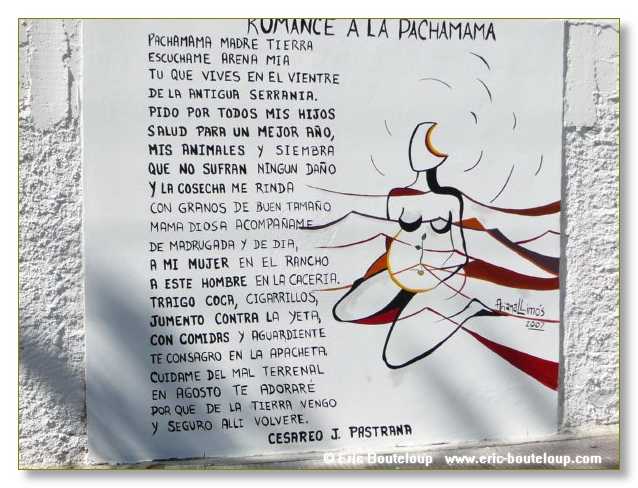 ROMANCE A LA PACHAMAMA
PACHAMAMA MADRE TIERRA
ESCUCHAME ARENA MIA
TU QUE VIVES EN EL VIENTRE
DE LA ANTIGUA SERRANIA.
PIDO POR TODOS MIS HIJOS
SALUD PARA UN MEJOR AÑO,
MIS ANIMALES Y SIEMBRA
QUE NO SUFRAN NINGUN DAÑO
Y LA COSECHA ME RINDA
CON GRANOS DE BUEN TAMAÑO
MAMA DIOSA ACOMPAÑAME
DE MADRUGADA Y DE DIA,
A MI MUJER EN EL RANCHO
A ESTE HOMBRE EN LA CACERIA.
TRAIGO COCA, CIGARRILLOS,
JUMENTO CONTRA LA YETA,
CON COMIDAS Y AGUARDIENTE
TE CONSAGRO EN LA APACHETA.
CUIDAME DEL MAL TERRENAL
EN AGOSTO TE ADORARÉ
POR QUE DE LA TIERRA VENGO
Y SEGURO ALLI VOLVERE.
CESAREO J. PASTRANA
2007
© Eric Bouteloup www.eric-bouteloup.com